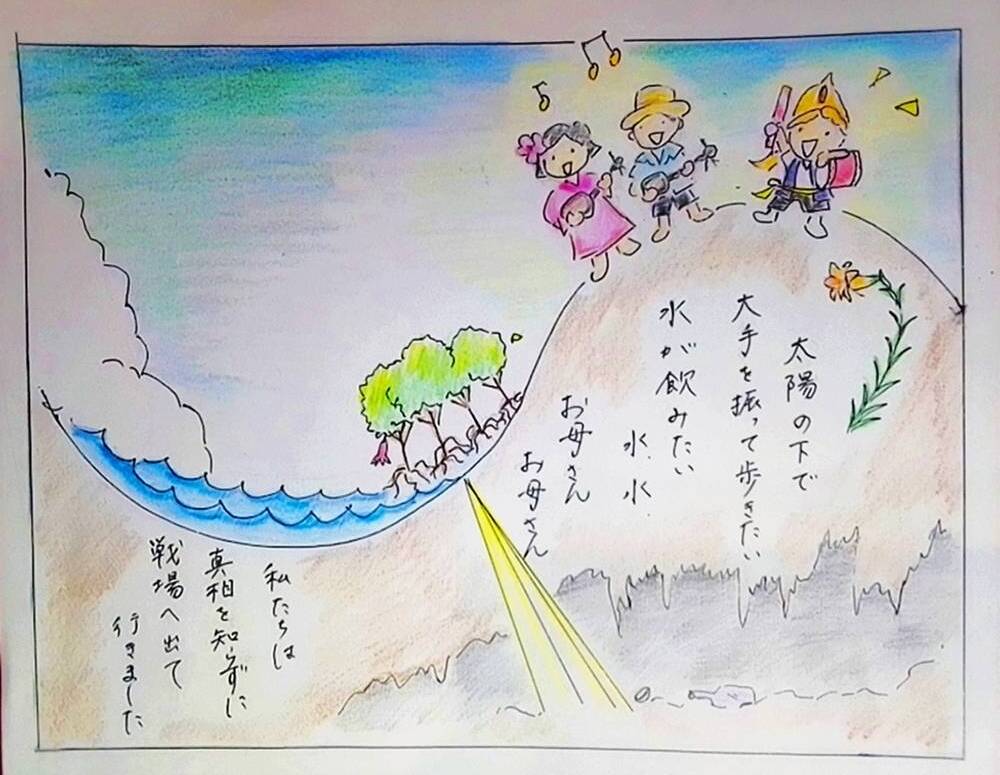 太陽の下で
大手を振って歩きたい
水が飲みたい
水、水
お母さん
お母さん
私たちは
真相を知らずに
戦場へ出て
行きました